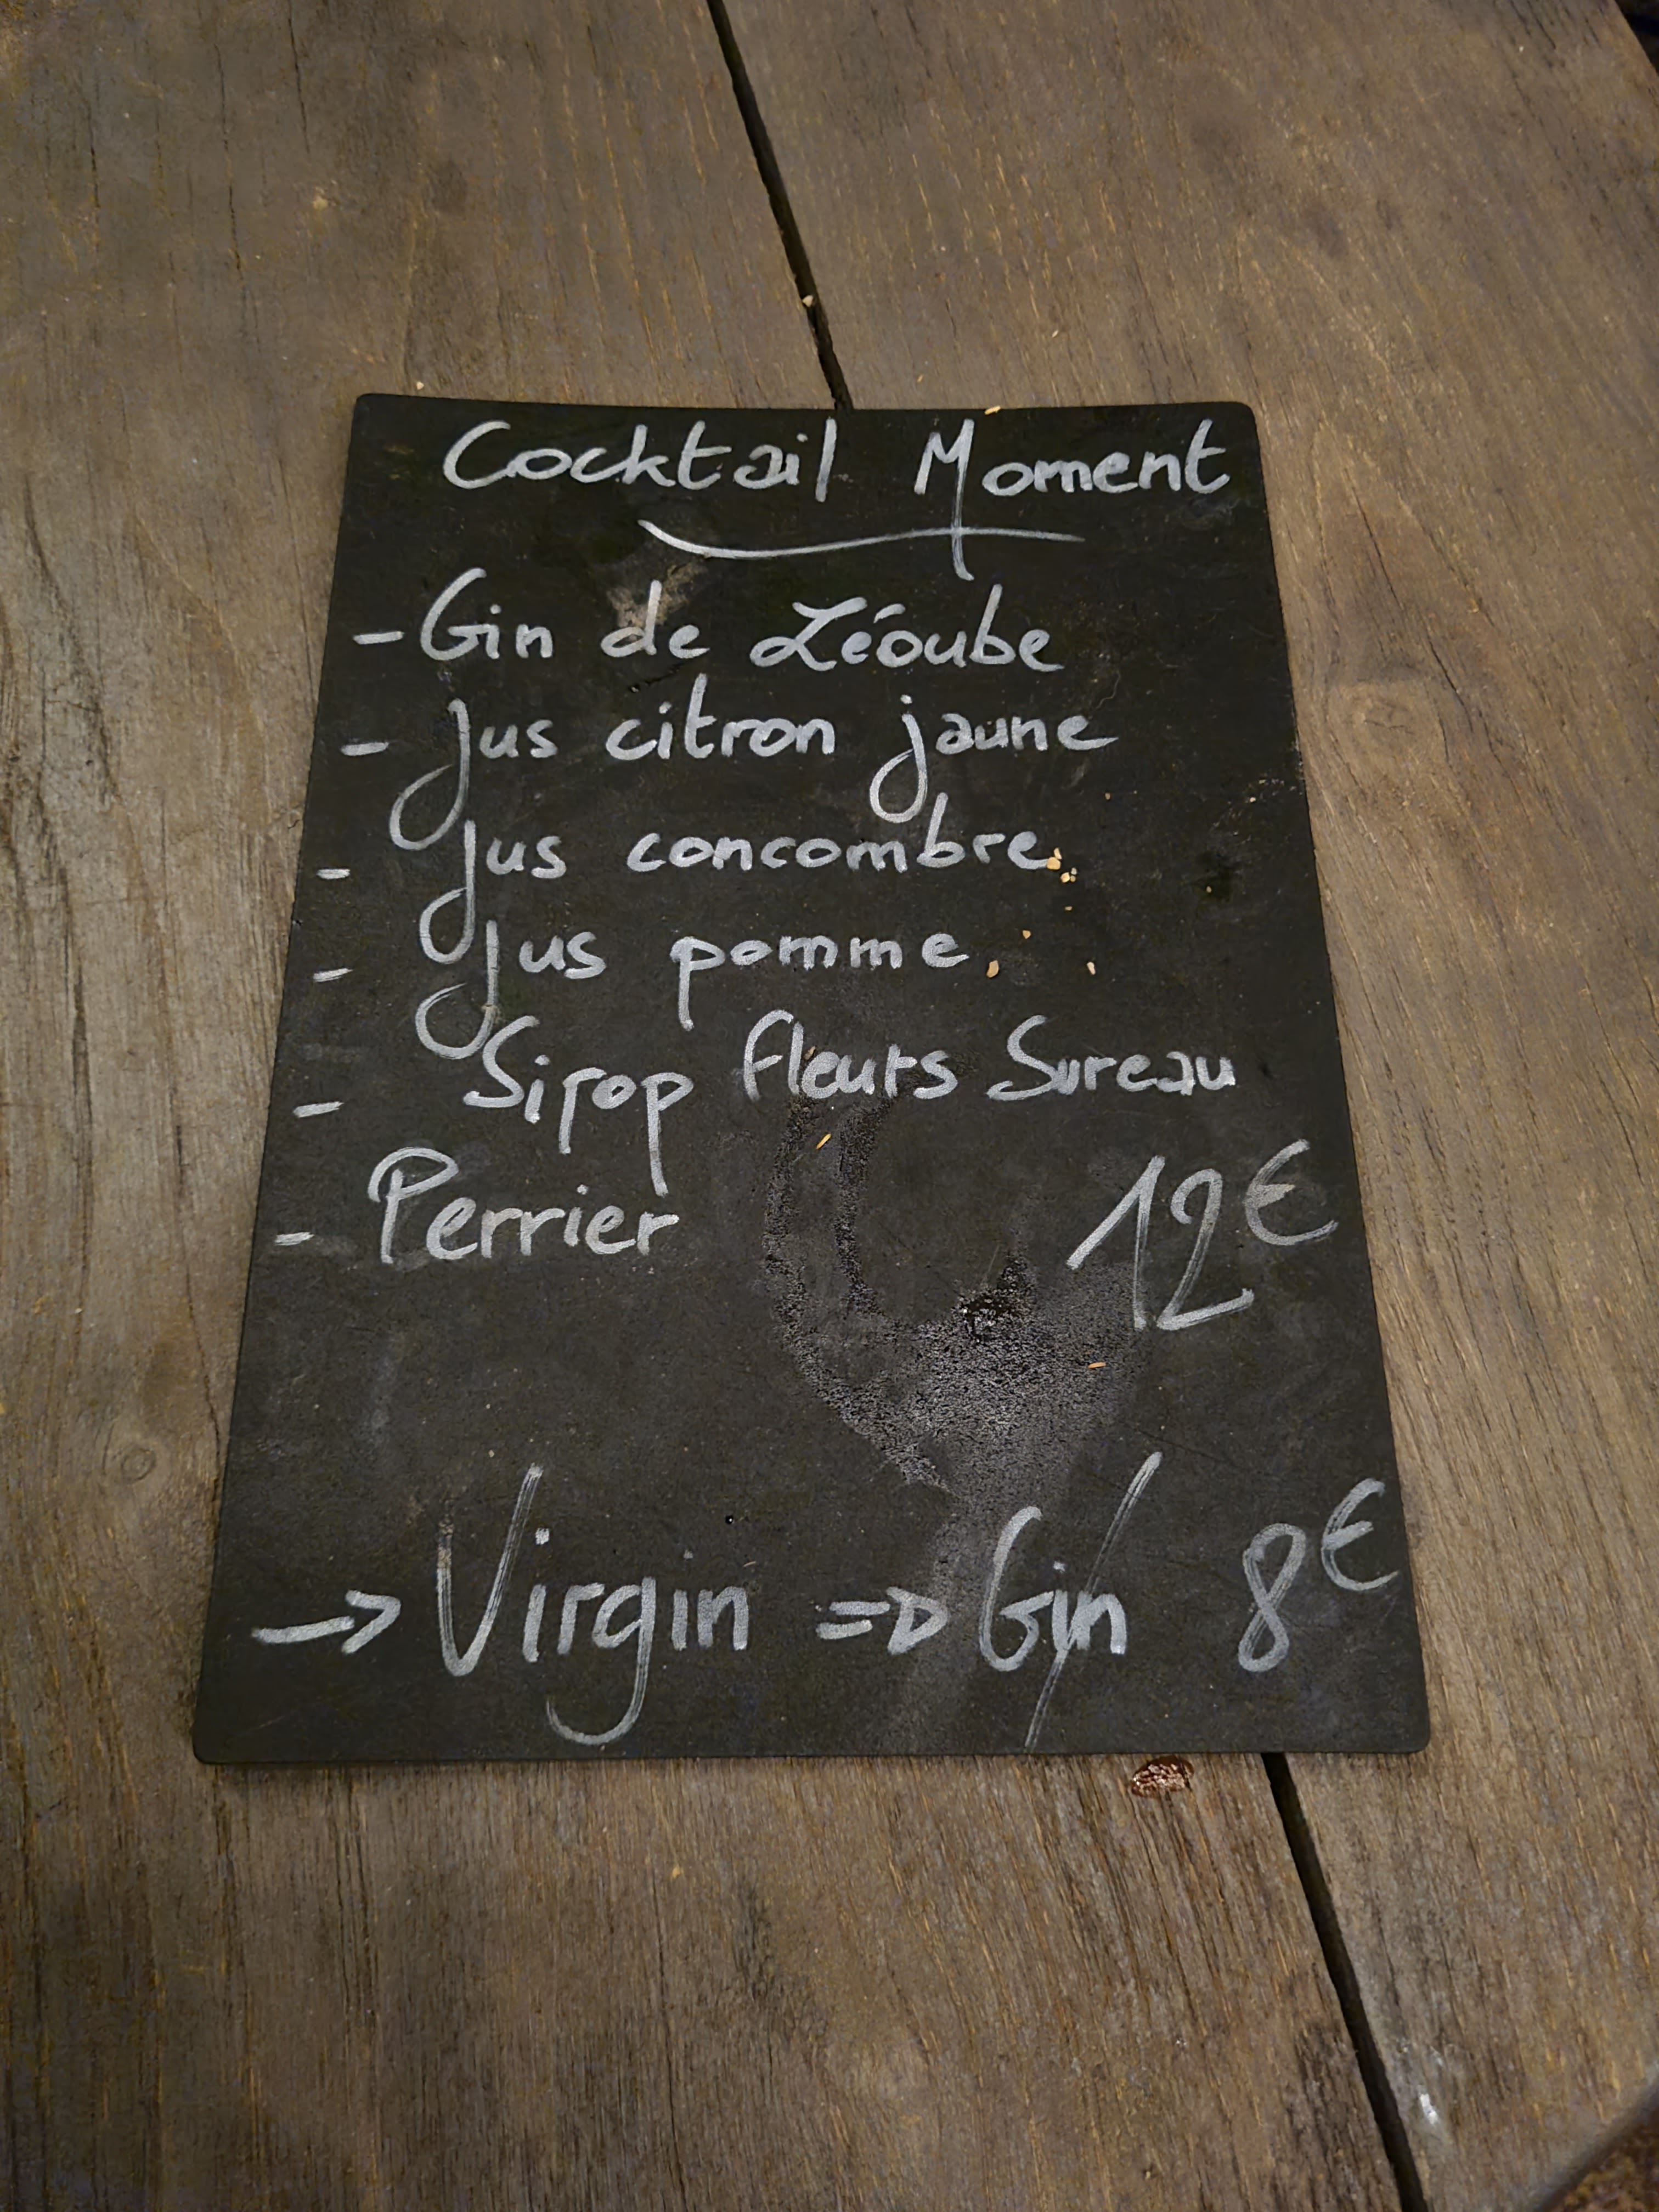 Cocktail Moment
- Gin de Léoube
- Jus citron jaune
- Jus concombre
- Jus pomme
- Sirop fleurs Sureau
- Perrier 12€
→ Virgin => Gin 8€